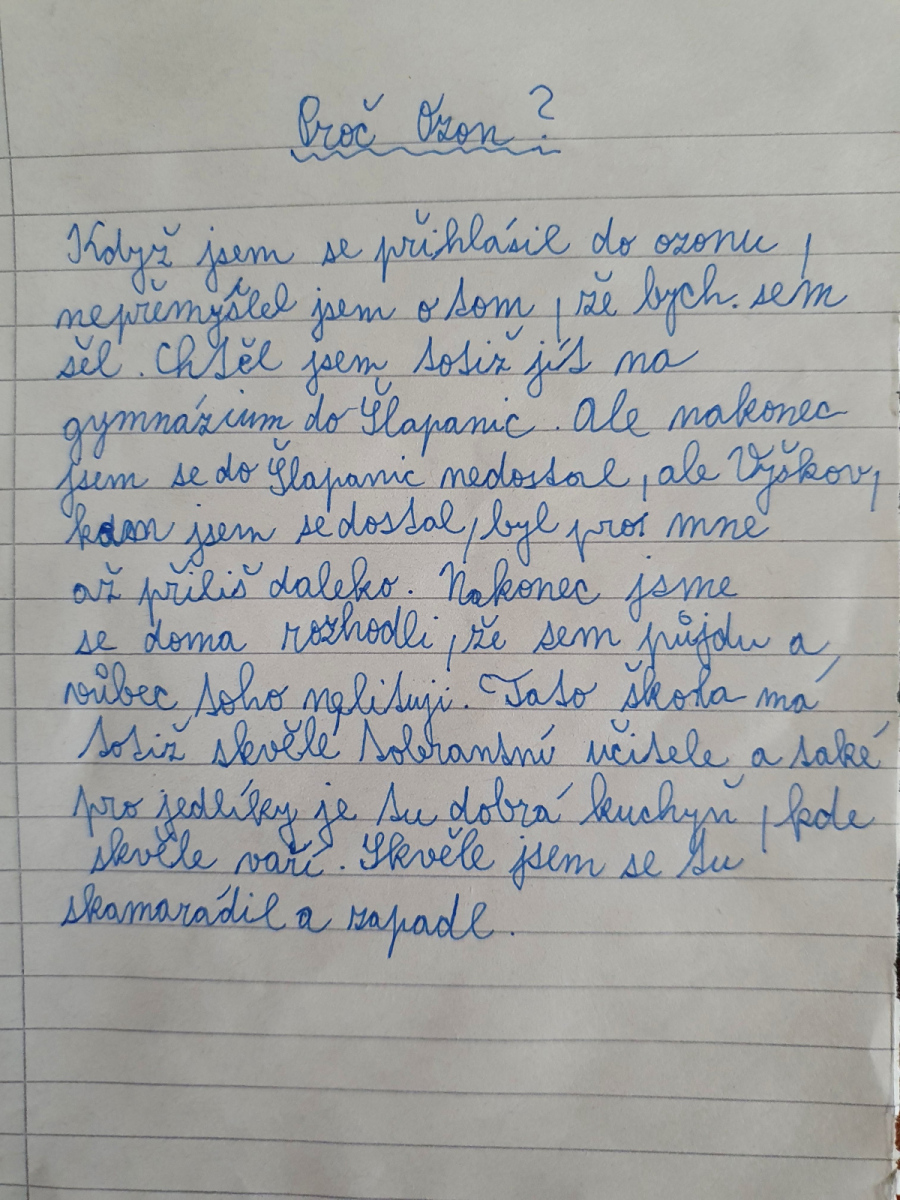 Proč Ozon?
Když jsem se přihlásil do ozonu,
nepřemýšlel jsem o tom, že bych sem
šel. Chtěl jsem totiž jít na
gymnázium do Šlapanic. Ale nakonec
jsem se do Šlapanic nedostal, ale Vyškov,
kam jsem se dostal, byl pro mne
až příliš daleko. Nakonec jsme
se doma rozhodli, že sem půjdu a
vůbec toho nelituji. Tato škola má
totiž skvělé tolerantní učitele a také
pro jedlíky je tu dobrá kuchyň, kde
skvěle vaří. Skvěle jsem se tu
skamarádil a zapadl.